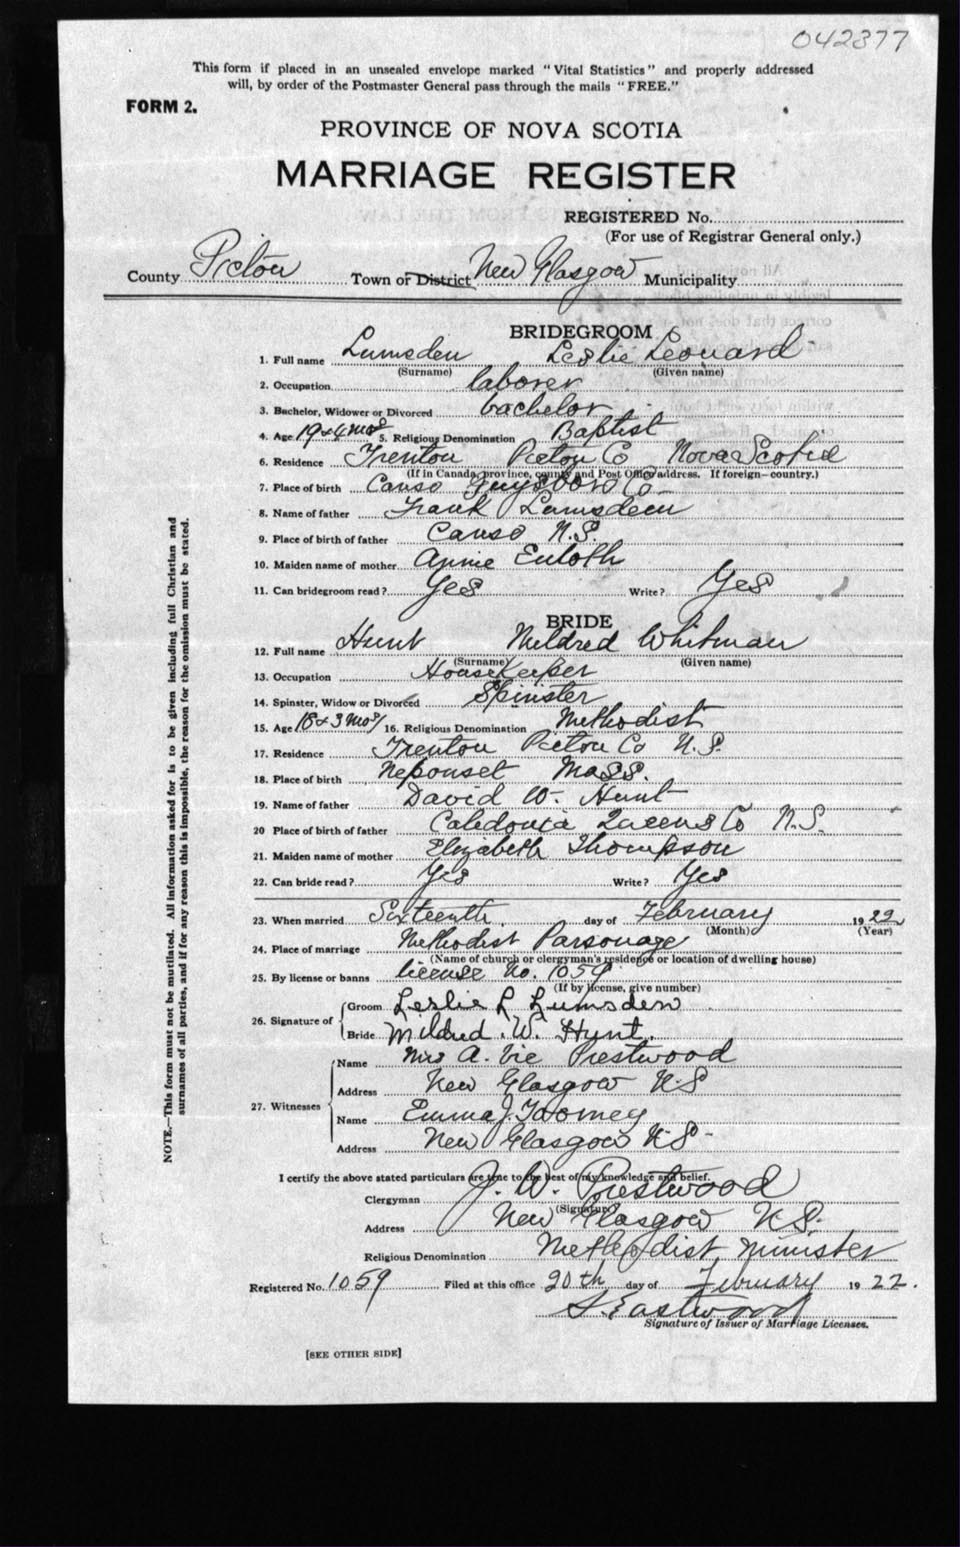 042377
This form if placed in an unsealed envelope marked "Vital Statistics" and properly addressed
will, by order of the Postmaster General pass through the mails "FREE."
FORM 2.
PROVINCE OF NOVA SCOTIA
MARRIAGE REGISTER
REGISTERED No.
(For use of Registrar General only.)
County Pictou Town or District New Glasgow Municipality
BRIDEGROOM
1. Full name Lumsden Leslie Leonard
(Surname) (Given name)
2. Occupation laborer
3. Bachelor, Widower or Divorced bachelor
4. Age 19 & 6 mos 5. Religious Denomination Baptist
6. Residence Trenton Pictou Co Nova Scotia
(If in Canada, province, county and Post Office address. If foreign—country.)
7. Place of birth Canso Guysboro Co
8. Name of father Frank Lumsden
9. Place of birth of father Canso N.S.
10. Maiden name of mother Annie Euloth
11. Can bridegroom read? Yes Write? Yes
BRIDE
12. Full name Hunt Mildred Whitman
(Surname) (Given name)
13. Occupation Housekeeper
14. Spinster, Widow or Divorced Spinster
15. Age 18 & 3 mos 16. Religious Denomination Methodist
17. Residence Trenton Pictou Co N.S.
18. Place of birth Neponset Mass.
19. Name of father David W. Hunt
20 Place of birth of father Caledonia Queens Co N.S.
21. Maiden name of mother Elizabeth Thompson
22. Can bride read? Yes Write? Yes
23. When married Sixteenth day of February 1922
(Month) (Year)
24. Place of marriage Methodist Parsonage
(Name of church or clergyman's residence or location of dwelling house)
25. By license or banns license No. 1059
(If by license, give number)
26. Signature of Groom Leslie L Lumsden
Bride Mildred. W. Hunt.
27. Witnesses Name Mrs A. Vie Prestwood
Address New Glasgow NS
Name Emma J. Toomey
Address New Glasgow N.S-
I certify the above stated particulars are true to the best of my knowledge and belief.
Clergyman J. W. Prestwood
(Signature)
Address New Glasgow N.S.
Religious Denomination Methodist Minister
Registered No. 1059 Filed at this office 20th day of February 1922.
S. Eastwood
Signature of Issuer of Marriage Licenses.
[SEE OTHER SIDE]
NOTE.—This form must not be mutilated. All information asked for is to be given including full Christian and
surnames of all parties, and if for any reason this is impossible, the reason for the omission must be stated.